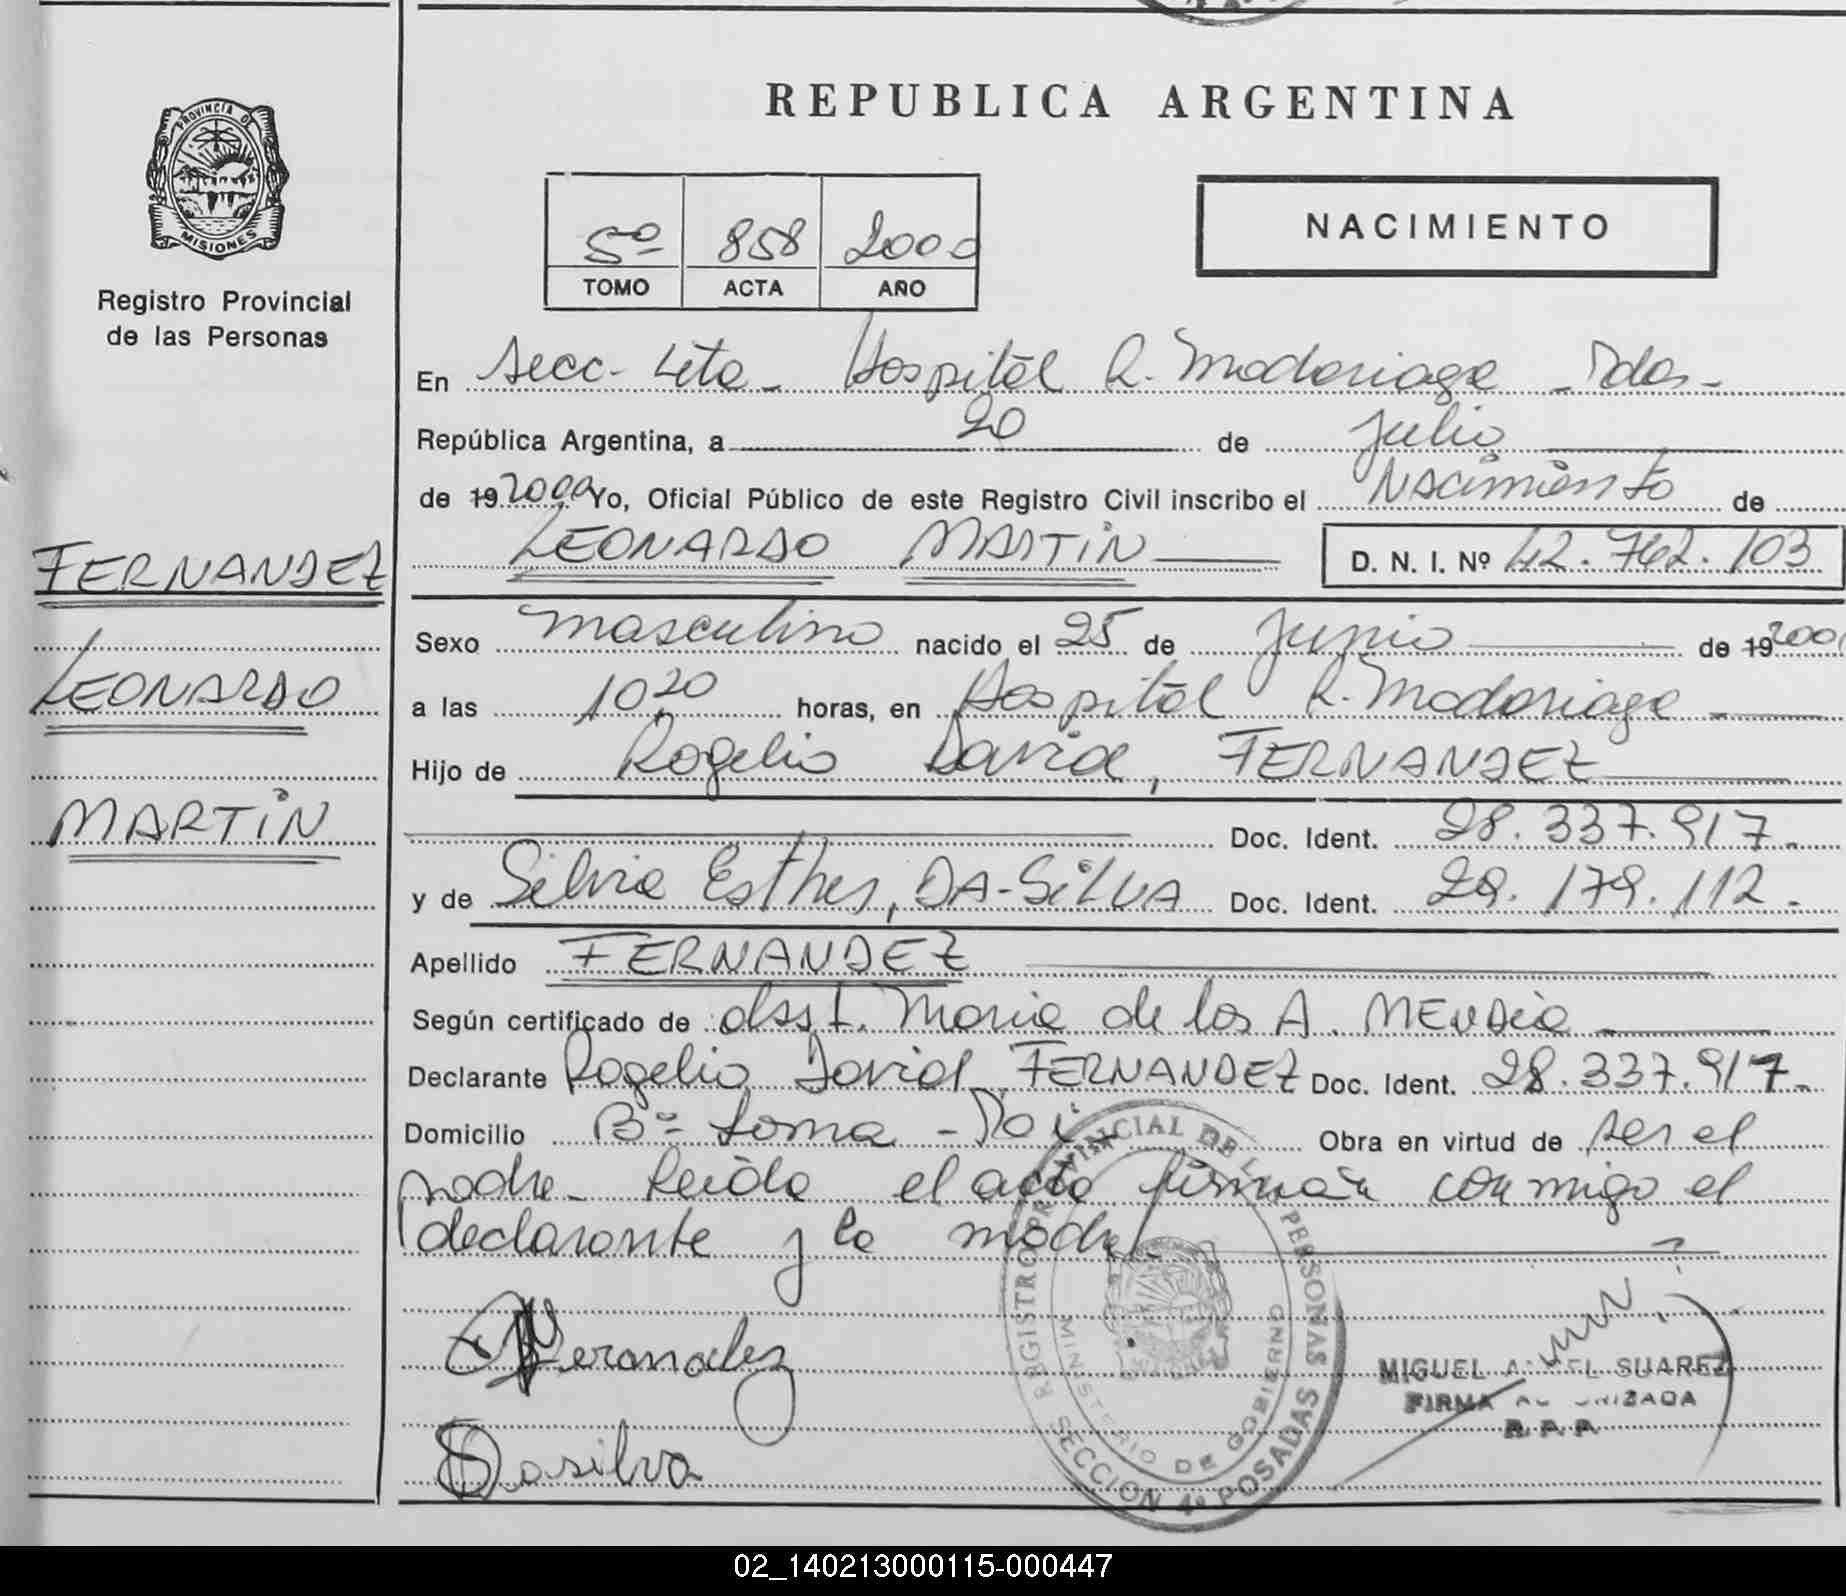 REPUBLICA ARGENTINA
PROVINCIA DE
MISIONES
Registro Provincial
de las Personas
5º 858 2000
TOMO ACTA AÑO
NACIMIENTO
En Secc. 4ta - Hospital R. Madariaga - Pdas -
República Argentina, a 20 de Julio
de 19 2000 Yo, Oficial Público de este Registro Civil inscribo el Nacimiento de
LEONARDO MARTiN D. N. I. Nº 42.762.103
FERNANDEZ
LEONARDO
MARTiN
Sexo masculino nacido el 25 de Junio de 19 2000
a las 10,20 horas, en Hospital R. Madariaga
Hijo de Rogelio David, FERNANDEZ
Doc. Ident. 28.337.917.-
y de Silvia Esther, DA-SiLVA Doc. Ident. 29.179.112.-
Apellido FERNANDEZ
Según certificado de obst. Maria de los A. MENDia
Declarante Rogelio David FERNANDEZ Doc. Ident. 28.337.917.-
Domicilio Bº Loma - Obra en virtud de ser el
padre - Leida el acta firman conmigo el
declarante y la madre.
Fernandez
Dasilva
REGISTRO PROVINCIAL DE LAS PERSONAS
MINISTERIO DE GOBIERNO
SECCION 4º POSADAS
MIGUEL SUAREZ
FIRMA
R.P.P.
02_140213000115-000447